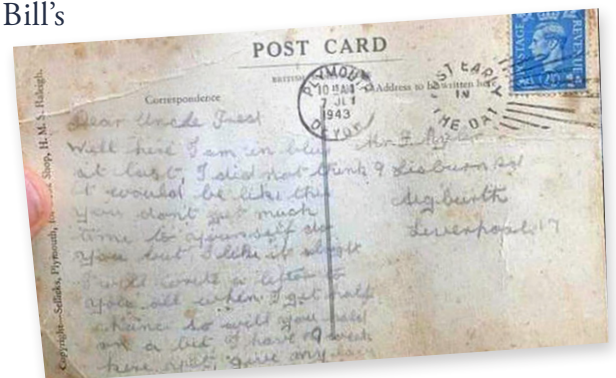 Bill's
POST CARD
Correspondence
Address to be written here
PLYMOUTH
10 AM
7 JL
1943
DEVON
POST EARLY
IN
THE DAY
POSTAGE REVENUE
Copyright—Sellicks, Plymouth, Shop, H. M. S. Raleigh.
Dear Uncle
Well here I am in blue
at last, I did not think
it would be like this
you don't get much
time to yourself do
you but I like it alright
I will write a letter to
you all when I get half
chance so will you
on a bit I have 9 week
here yet, give my
Mr F.
9 Lisburn Rd
Aigburth
Liverpool 17